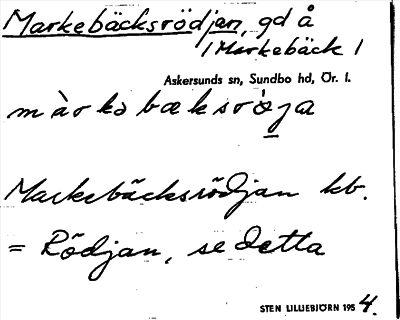 Markebäcksrödjan, gd å
/Markebäck/
Askersunds sn, Sundbo hd, Ör. l.
màrkəbæksrö́ja
Markebäcksrödjan kb.
= Rödjan, se detta
STEN LILLIEBJÖRN 1954.